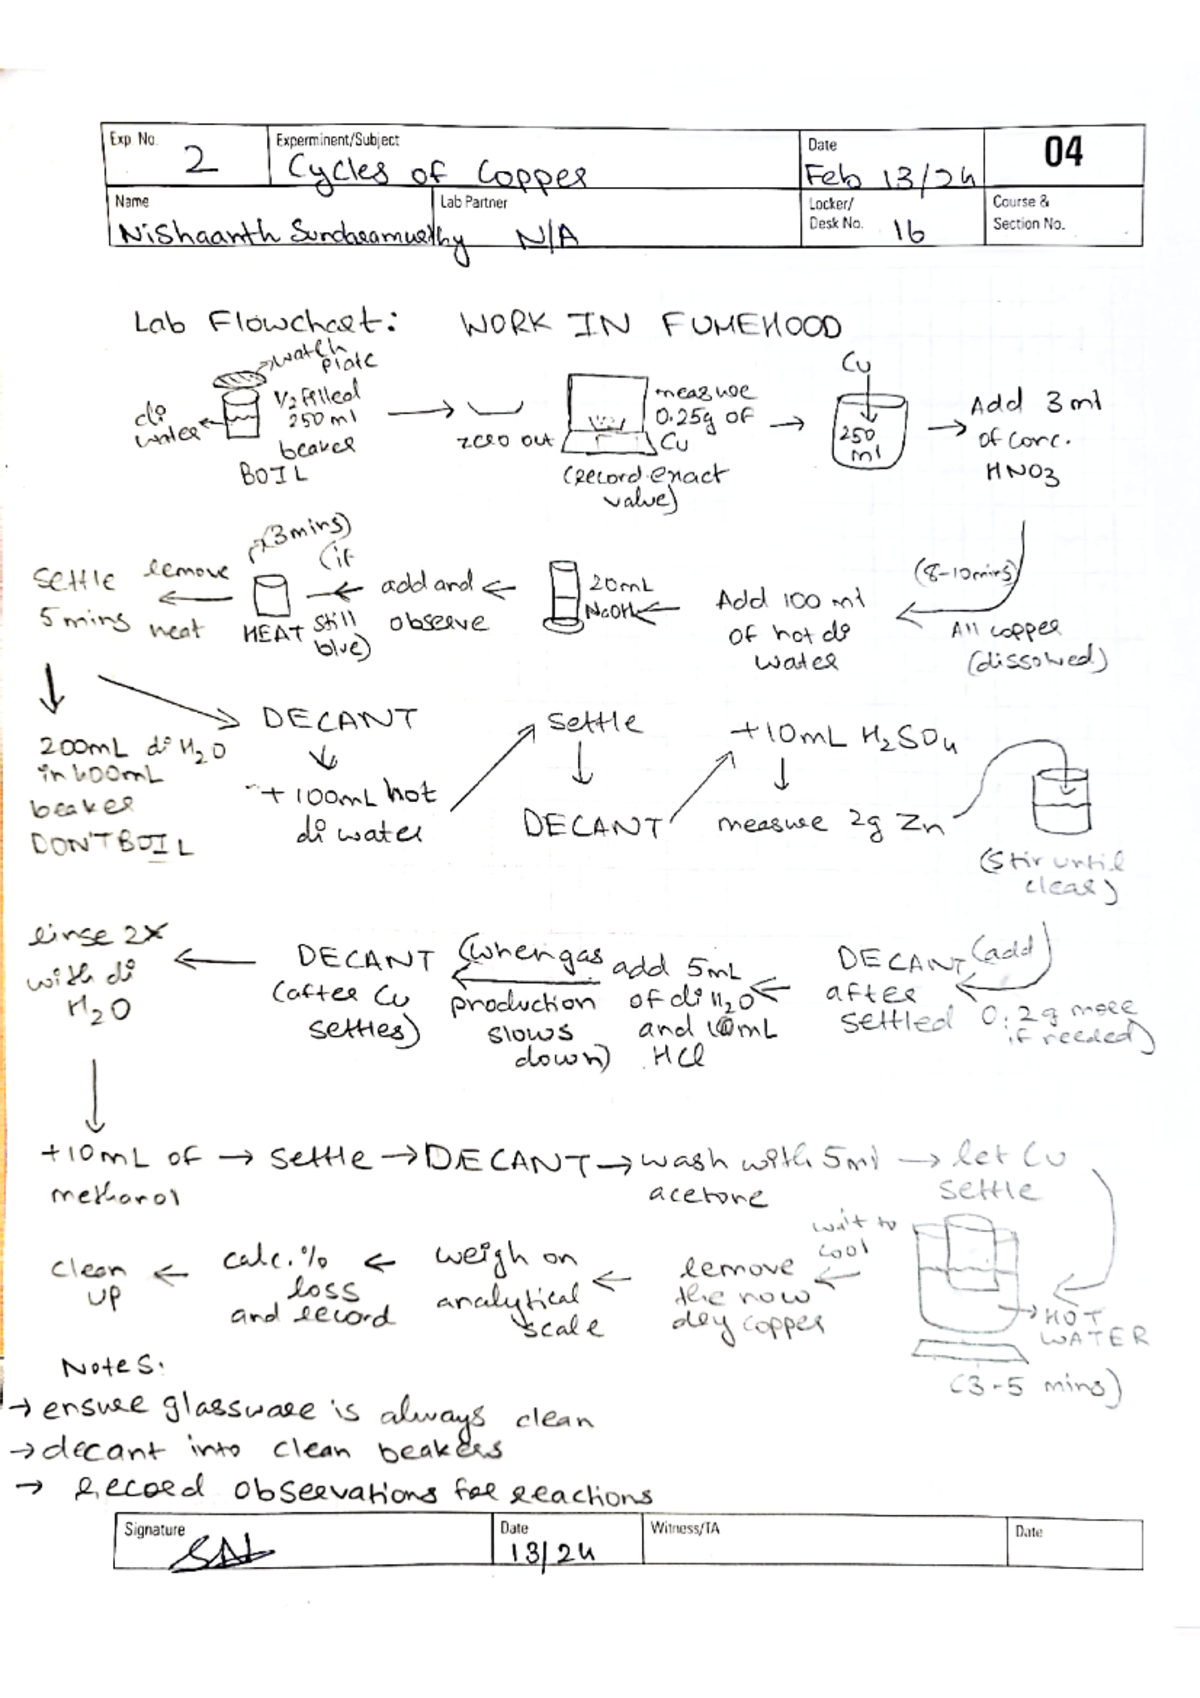 Exp. No. 2 Experminent/Subject Cycles of Copper Date Feb 13/24 04
Name Nishaanth Sundaramurthy Lab Partner N/A Locker/ Desk No. 16 Course & Section No.
Lab Flowchart: WORK IN FUMEHOOD
watch plate
di water
1/2 filled
250 ml
beaker
BOIL
zero out
measure
0.25g of
Cu
(record exact
value)
Cu
250
ml
Add 3 ml
of conc.
HNO3
(8-10mins)
All copper
(dissolved)
Add 100 ml
of hot di
water
20mL
NaOH
add and
observe
(if
still
blue)
(3 mins)
HEAT
remove
heat
settle
5 mins
200mL di H2O
in 400mL
beaker
DON'T BOIL
DECANT
+ 100mL hot
di water
settle
DECANT
+10mL H2SO4
measure 2g Zn
(stir until
clear)
(add)
0.2g more
if needed)
DECANT
after
settled
add 5mL
of di H2O
and 10mL
HCl
(when gas
production
slows
down)
DECANT
(after Cu
settles)
rinse 2x
with di
H2O
+10mL of
methanol
settle
DECANT
wash with 5ml
acetone
let Cu
settle
HOT
WATER
(3-5 mins)
wait to
cool
remove
the now
dry copper
weigh on
analytical
scale
calc. %
loss
and record
clean
up
Notes:
→ ensure glassware is always clean
→ decant into clean beakers
→ record observations for reactions
Signature Date 13/24 Witness/TA Date